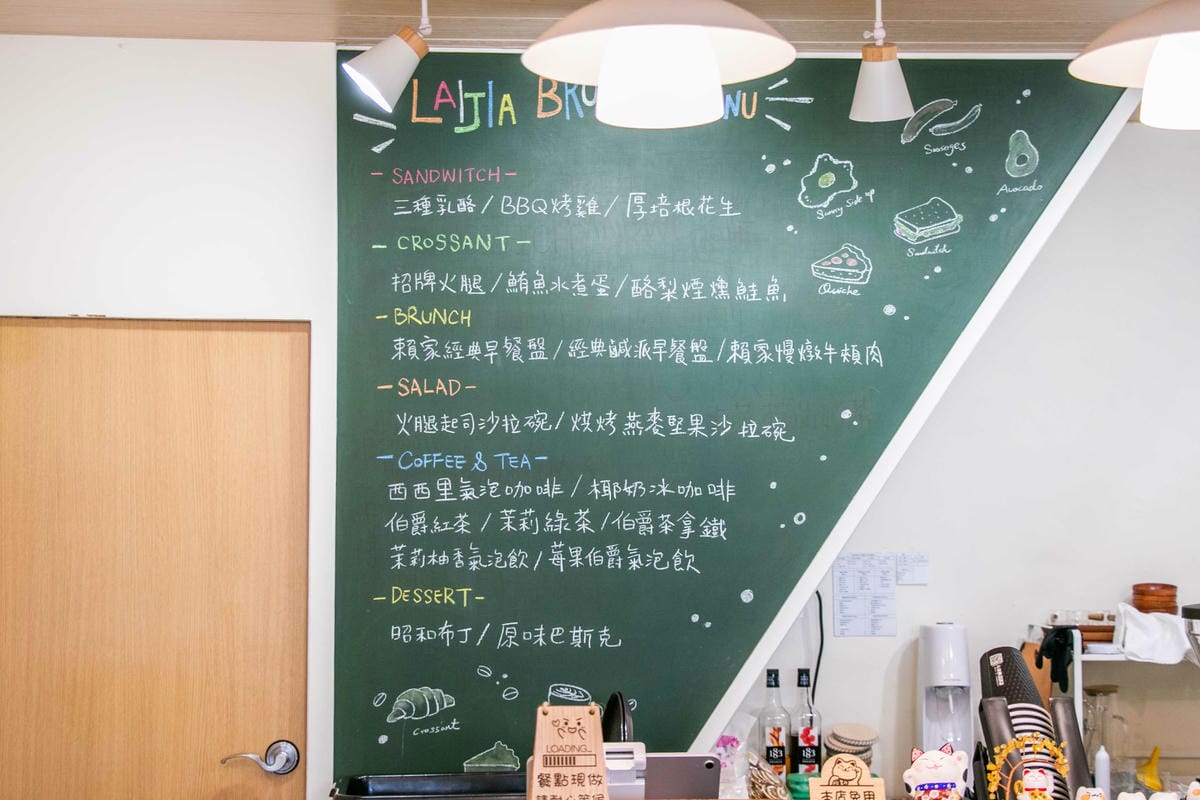 LAIJIA
- SANDWITCH -
三種乳酪 / BBQ烤雞 / 厚培根花生
- CROSSANT -
招牌火腿 / 鮪魚水煮蛋 / 酪梨煙燻鮭魚
- BRUNCH
賴家經典早餐盤 / 經典鹹派早餐盤 / 賴家慢燉牛頰肉
- SALAD -
火腿起司沙拉碗 / 烘烤燕麥堅果沙拉碗
- COFFEE & TEA -
西西里氣泡咖啡 / 椰奶冰咖啡
伯爵紅茶 / 茉莉綠茶 / 伯爵茶拿鐵
茉莉柚香氣泡飲 / 莓果伯爵氣泡飲
- DESSERT -
昭和布丁 / 原味巴斯克
Sausages
Avocado
Sunny Side up
Sandwitch
Quiche
crossant
LOADING...
餐點現做
1883
1883